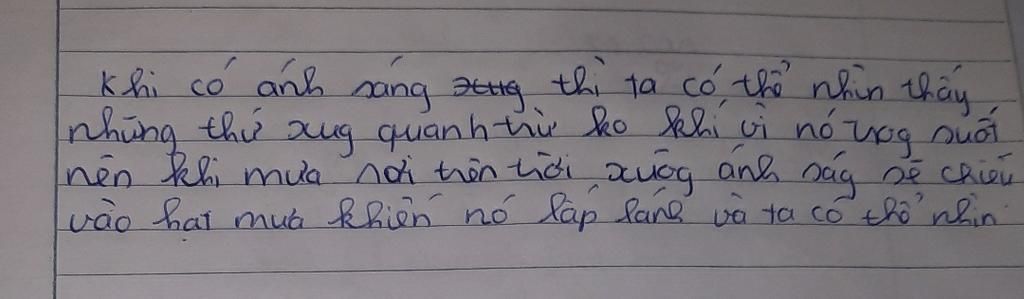 Khi có ánh sáng thì ta có thể nhìn thấy
những thứ xug quanh trừ ko khí vì nó trog suốt
nên khi mưa rơi trên trời xuốg ánh ság sẽ chiếu
vào hạt mưa khiến nó lấp lánh và ta có thể nhìn